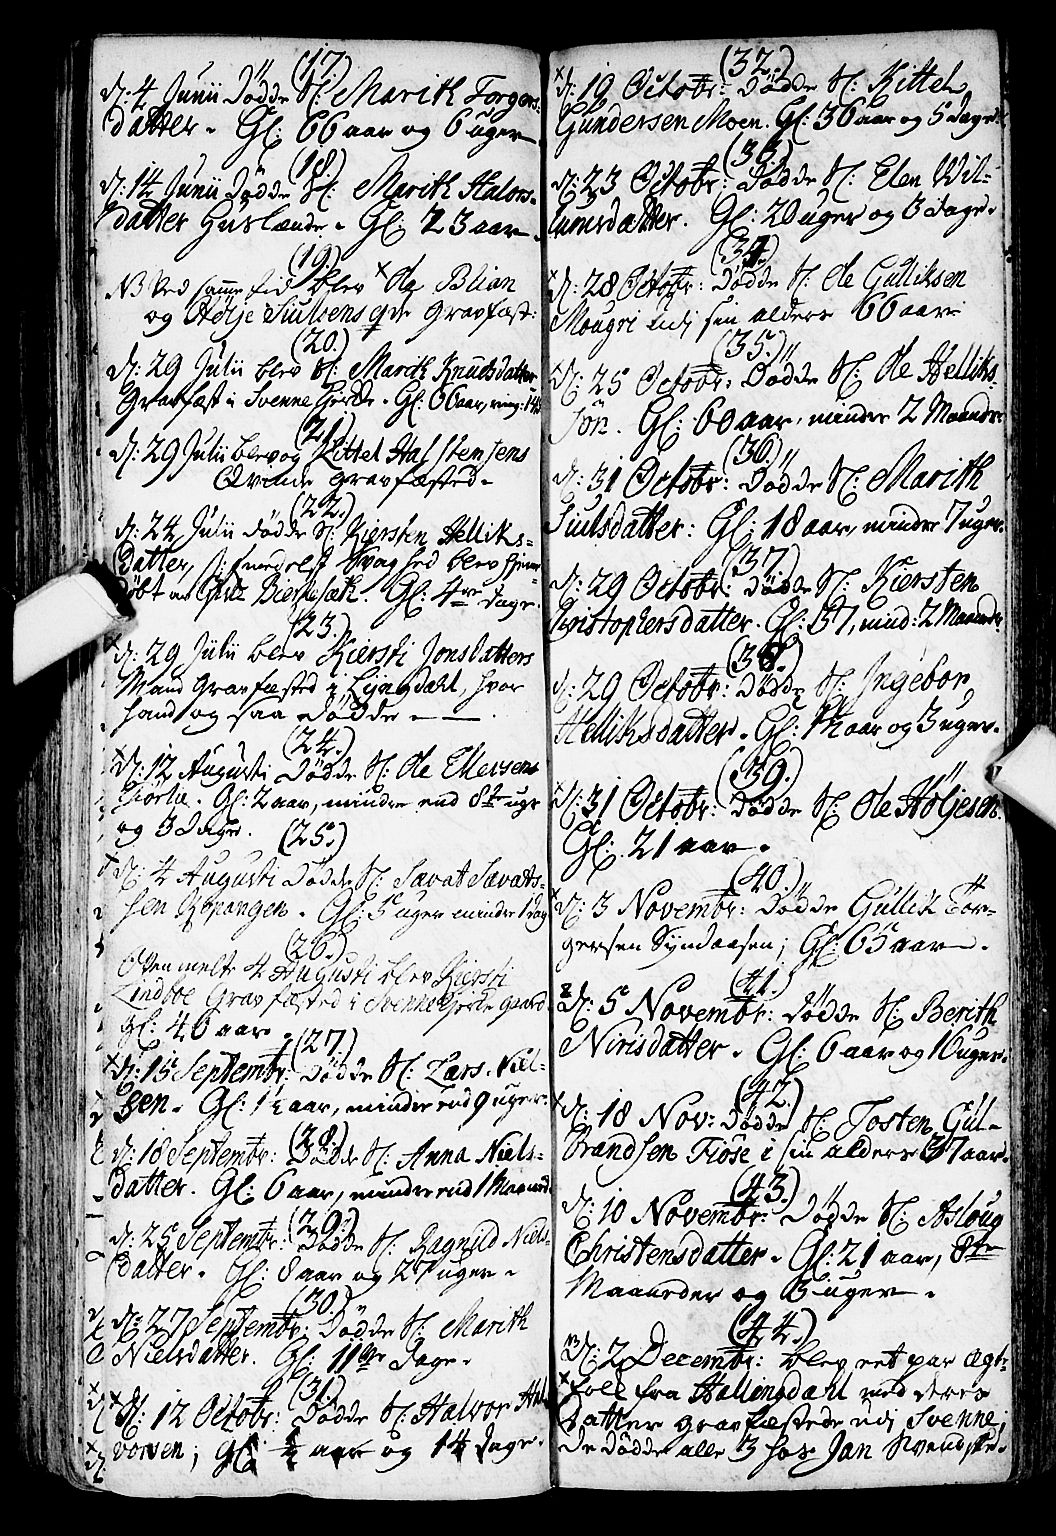 (17.)
D: 4 Junii Dödde S: Marith Torgers-
datter. Gl: 66 aar og 6 uger.
(18.)
D: 14 Junii Dödde S: Marith Halvors-
datter Huslænde. Gl: 23 aar.
(19.)
NB Ved samme tid blev Ole Blian
og Hölje Siulsens qde Gravfæst:
(20.)
D: 29 Julii blev S: Marith Knudsdatter
Gravfæst i Svennegierde. Gl: 66 aar,
(21.)
D: 29 Julii blev og Kittel Halstensens
Qvinde gravfæsted.
(22.)
D: 24 Julii dödde S: Kiersten Helliks-
datter, svaghed blev hjemme-
döbt av Bierkesæk. Gl: 4re dage.
(23.)
D: 29 Julii blev Kiersti Jonsdatters
Mand gravfæsted i Lyngdahl, hvor
hand og saa dödde
(24.)
D: 12 Augusti Dödde S: Ole Ellevsens
Gl: 2 aar, mindre end 8te uger
og 3 dager.
(25.)
D: 4 Augusti Dödde S: Savat Savats-
sen Kopangen. Gl: 5 uger mindre 1 dag
(26.)
Oven melte 4 Augusti blev Kiersti
Lindboe Gravfæsted i Svennegierde gaard
Gl: 40 aar.
(27.)
D: 15 Septembr: Dödde S: Lars Niel-
sen. Gl: 1½ aar, mindre end 9 uger.
(28.)
D: 18 Septembr: Dödde S: Anna Niels-
datter. Gl: 6 aar, mindre end 1 Maaned.
(29.)
D: 25 Septembr: Dödde S: Ragnild Niels-
datter. Gl: 8 aar og 27 uger.
(30.)
D: 27 Septembr: Dödde S: Marith
Nielsdatter. Gl: 11 dage.
(31.)
D: 12 Octobr: Dödde S: Halvor Hal-
vorsen; Gl: ½ aar og 14 dage.
(32.)
D: 19 Octobr: Dödde S: Kittel
Gundersen Moen. Gl: 36 aar og 5 dage.
(33.)
D: 23 Octobr: Dödde S: Elen Wil-
lumsdatter. Gl: 20 uger og 3 dage.
(34.)
D: 28 Octobr: Dödde S: Ole Gulliksen
Mougri udj sin alders 66 aar
(35.)
D: 25 Octobr: Dödde S: Ole Helliks-
Sön. Gl: 60 aar, mindre 2 Maaneder
(36.)
D: 31 Octobr: Dödde S: Marith
Siulsdatter: Gl: 18 aar, mindre 7 uger.
(37.)
D: 29 Octobr: Dödde S: Kiersten
Kristophersdatter. Gl: 37, mind: 2 Maaneder.
(38.)
D: 29 Octobr: Dödde S: Ingebor
Helliksdatter. Gl: aar og 3 uger.
(39.)
D: 31 Octobr: Dödde S: Ole Höljesen.
Gl: 21 aar.
(40.)
D: 3 Novembr: Dödde Gullik Tor-
gersen Syndaasen; Gl: 65 aar.
(41.)
D: 5 Novembr: Dödde S: Berith
Nirisdatter. Gl: 6 aar og 16 uger.
(42.)
D: 18 Nov: Dödde S: Tosten Gul-
brandsen Fiöse i sin alders 37 aar.
(43.)
D: 10 Novembr: Dödde S: Asloug
Christensdatter. Gl: 21 aar, 8te
Maaneder og 3 uger.
(44.)
D: 2 Decembr: blev eet par Ægte-
folk fra Hallingdahl med deres
Datter gravfæstede udj Svenne;
de dödde alle 3 hos Jan Svendske.